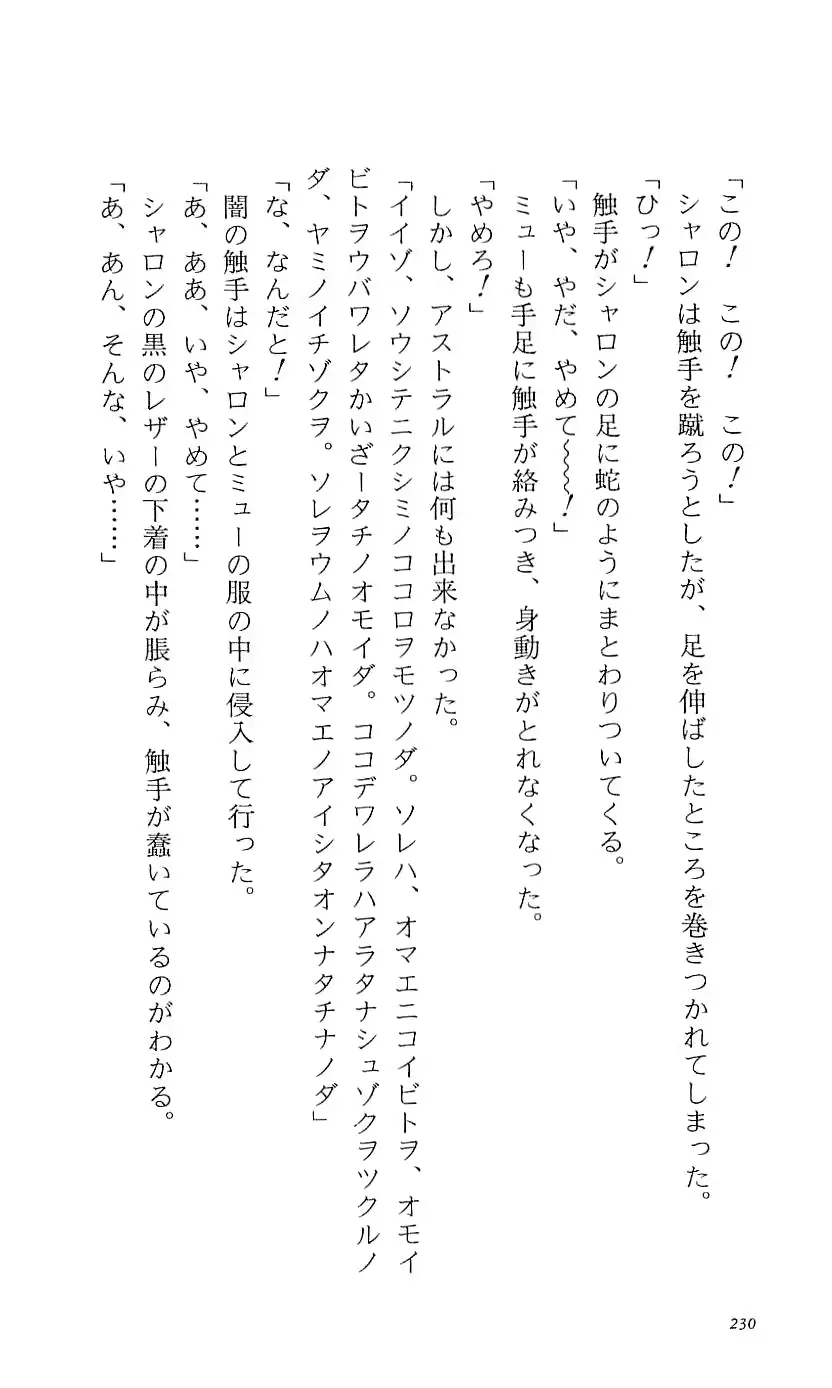 「この！　この！　この！」
　シャロンは触手を蹴ろうとしたが、足を伸ばしたところを巻きつかれてしまった。
「ひっ！」
　触手がシャロンの足に蛇のようにまとわりついてくる。
「いや、やだ、やめて～～～！」
　ミューも手足に触手が絡みつき、身動きがとれなくなった。
「やめろ！」
　しかし、アストラルには何も出来なかった。
「イイゾ、ソウシテニクシミノココロヲモツノダ。ソレハ、オマエニコイビトヲ、オモイ
ビトヲウバワレタかいざータチノオモイダ。ココデワレラハアラタナシュゾクヲツクルノ
ダ、ヤミノイチゾクヲ。ソレヲウムノハオマエノアイシタオンナタチナノダ」
「な、なんだと！」
　闇の触手はシャロンとミューの服の中に侵入して行った。
「あ、ああ、いや、やめて……」
　シャロンの黒のレザーの下着の中が脹らみ、触手が蠢いているのがわかる。
「あ、あん、そんな、いや……」
230